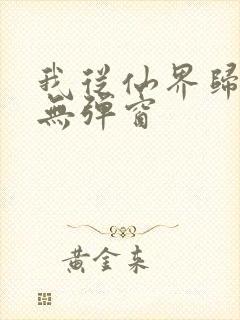 我從仙界歸
無彈窗
黃金來